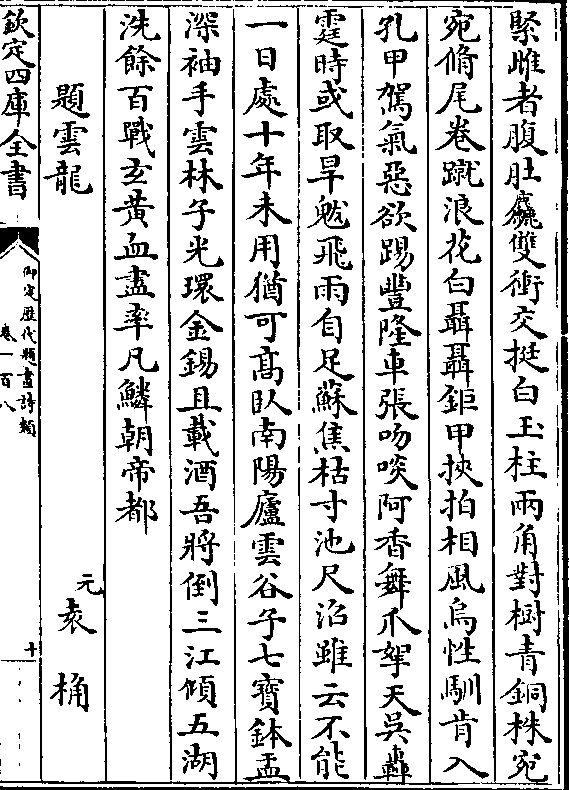 緊雌者腹肚麤雙衝交挺白玉柱兩角對樹青銅株宛
宛脩尾卷蹴浪花白聶聶鉅甲挾拍相風烏性馴肯入
孔甲駕氣惡欲踢豐隆車張吻啖阿香舞爪拏天吳轟
霆時或取旱魃飛雨自足蘇焦枯寸池尺沼雖云不能
一日處十年未用猶可高臥南陽廬雲谷子七寳鉢盂
深袖手雲林子光環金錫且載酒吾將倒三江傾五湖
洗餘百戰玄黄血盡率凡鱗朝帝都
題雲龍
元袁桷
欽定四庫全書
御定歴代題畫詩類
卷一百八
十